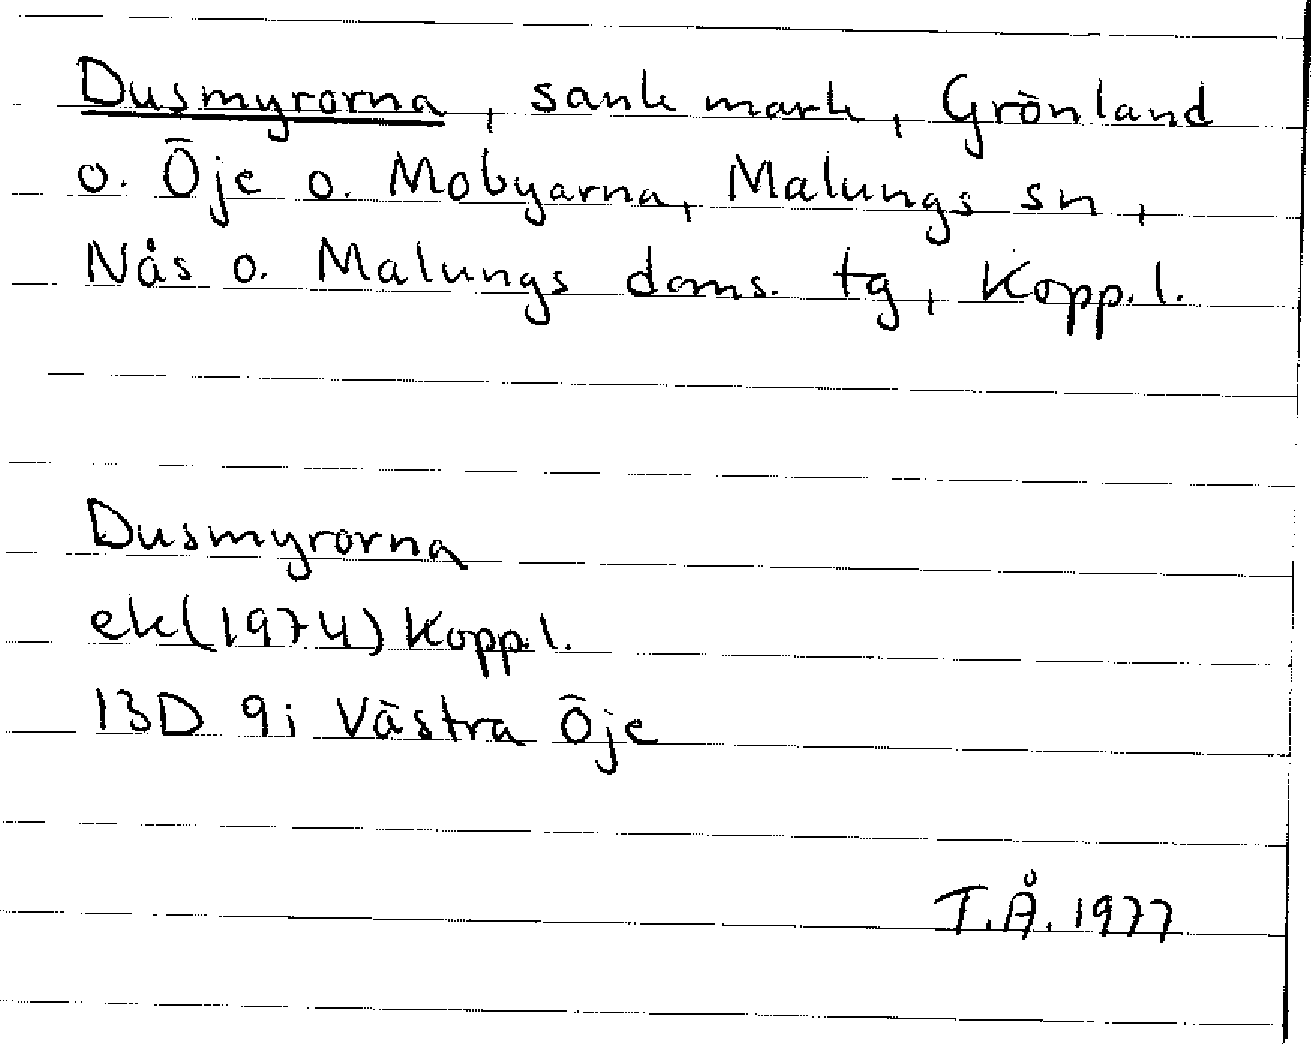 Dusmyrorna, sank mark, Grönland
o. Öje o. Mobyarna, Malungs sn,
Nås o. Malungs doms. tg, Kopp. l.
Dusmyrorna
ek (1974) Kopp. l.
13D 9i Västra Öje
T.Å. 1977